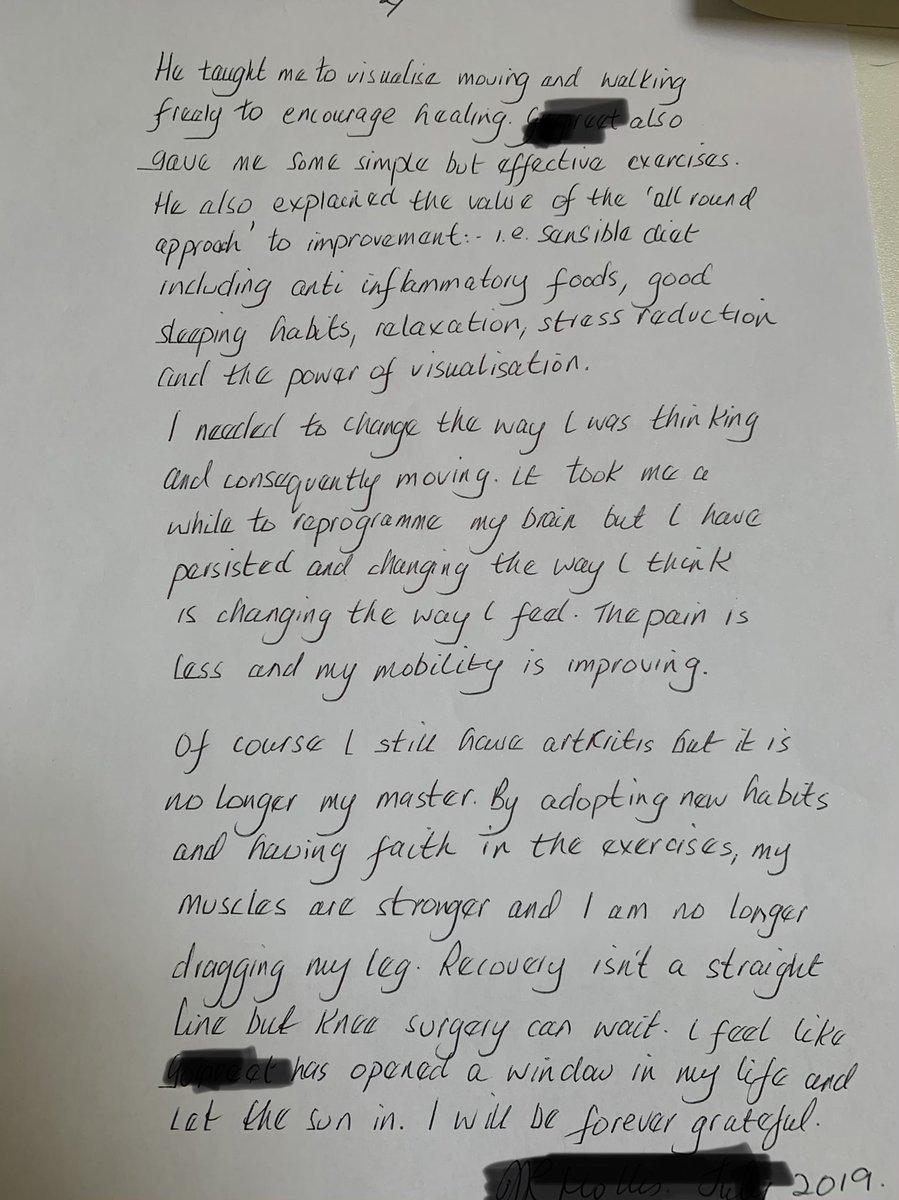 He taught me to visualise moving and walking
freely to encourage healing. also
gave me some simple but effective exercises.
He also explained the value of the 'all round
approach' to improvement:- i.e. sensible diet
including anti inflammatory foods, good
sleeping habits, relaxation, stress reduction
and the power of visualisation.
I needed to change the way I was thinking
and consequently moving. It took me a
while to reprogramme my brain but I have
persisted and changing the way I think
is changing the way I feel. The pain is
less and my mobility is improving.
Of course I still have artkritis but it is
no longer my master. By adopting new habits
and having faith in the exercises, my
muscles are stronger and I am no longer
dragging my leg. Recovery isn't a straight
line but knee surgery can wait. I feel like
has opened a window in my life and
let the sun in. I will be forever grateful.
2019.